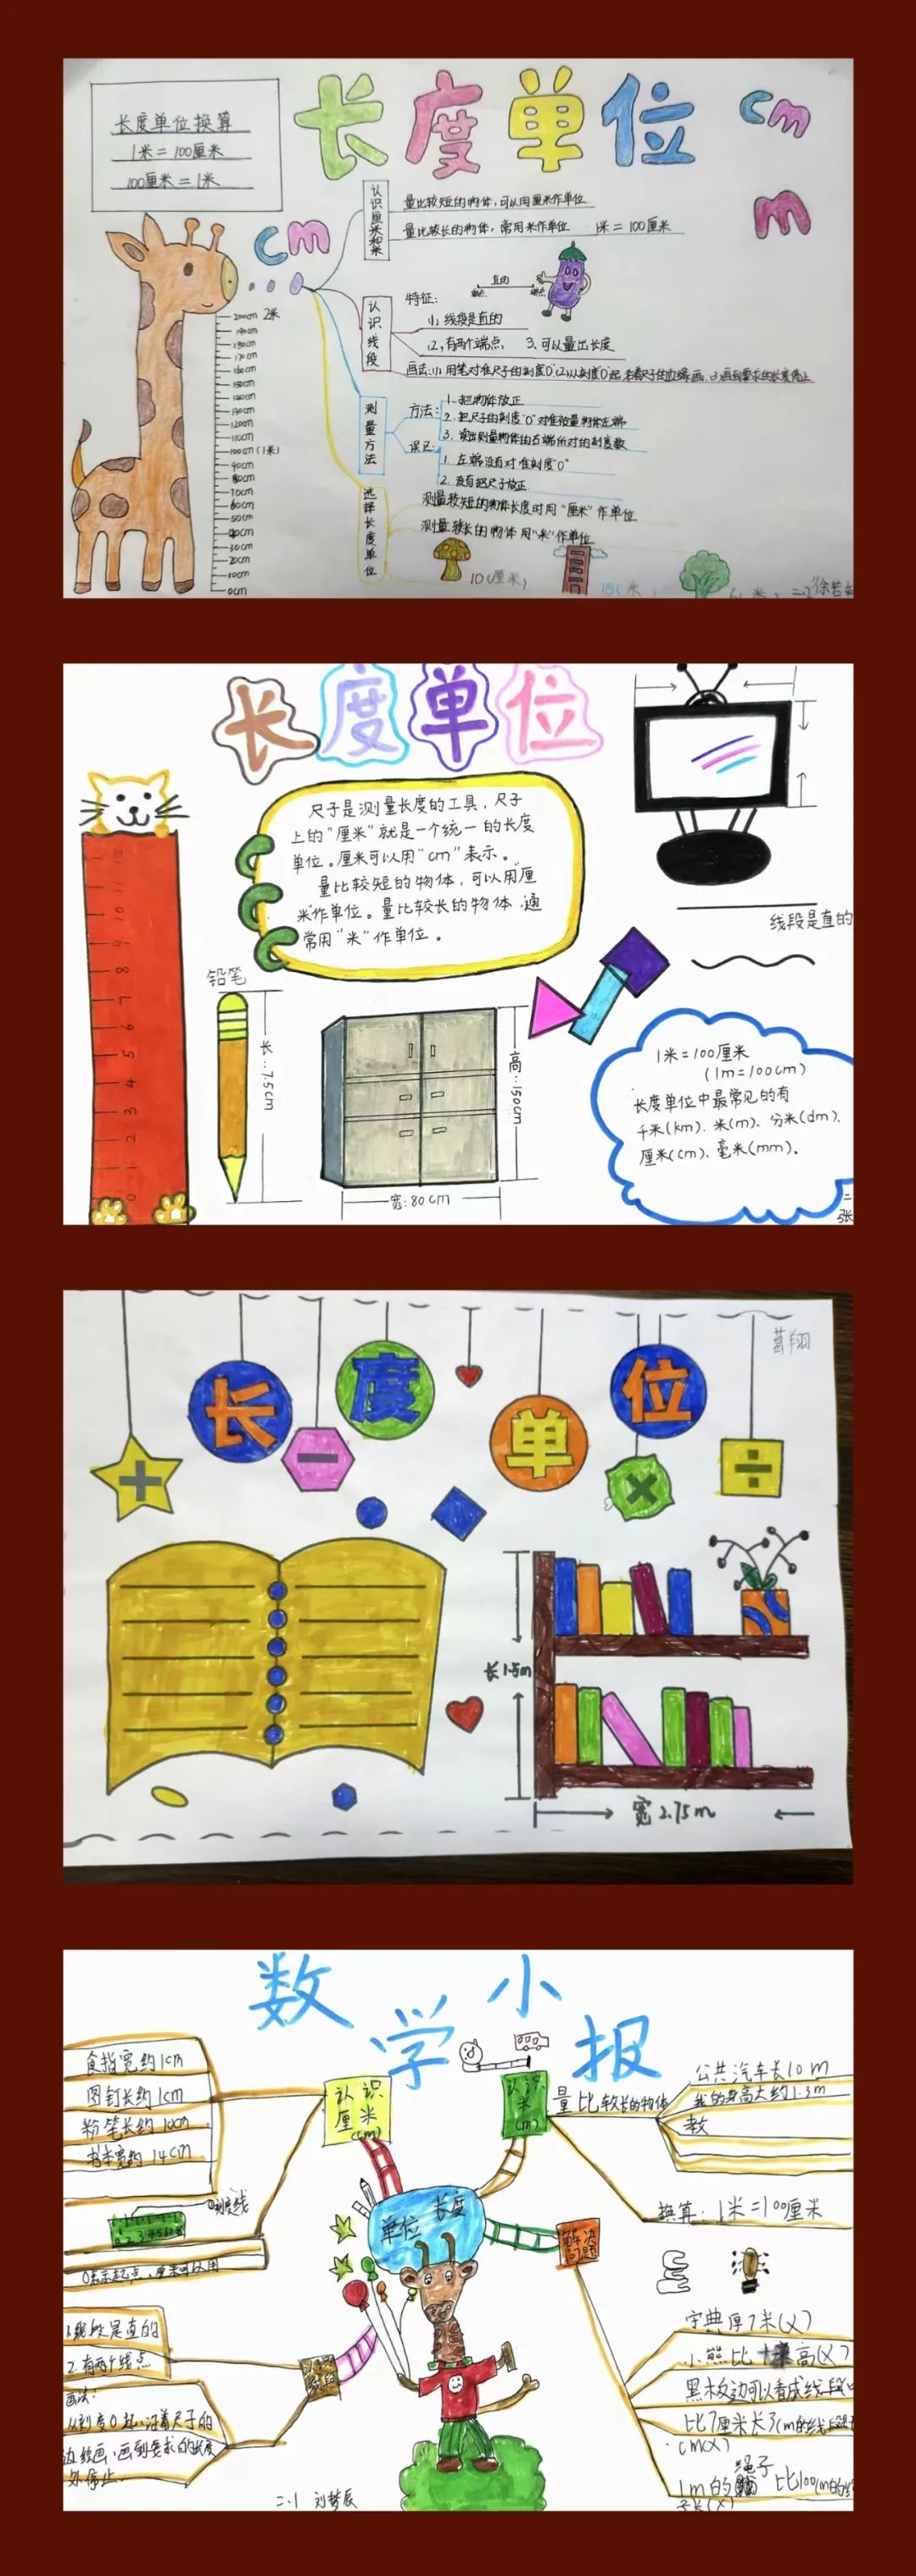 长度单位换算
1米=100厘米
100厘米=1米
长度单位
cm
m
cm
认识厘米和米
量比较短的物体,可以用厘米作单位
量比较长的物体,常用米作单位 1米=100厘米
认识线段
特征:
直的
端点 端点
(1)、线段是直的
(2)、有两个端点 3、可以量出长度
画法:(1)、用笔对准尺子的刻度"0"(2)从刻度"0"起,沿着尺子的边缘画
测量方法
方法:
1、把物体放正
2、把尺子的刻度"0"对准被量物体左端
3、读出测量物体的右端所对的刻度数
误区:
1、左端没有对准刻度"0"
2、没有把尺子放正
选择长度单位
测量较短的物体长度时用"厘米"作单位
测量较长的物体用"米"作单位
10(厘米)
15(米
(米)
200cm 2米
190cm
180cm
170cm
160cm
150cm
140cm
130cm
120cm
110cm
100cm(1米)
90cm
80cm
70cm
60cm
50cm
40cm
30cm
20cm
10cm
0cm
长度单位
尺子是测量长度的工具,尺子
上的"厘米"就是一个统一的长度
单位。厘米可以用"cm"表示。
量比较短的物体,可以用厘
米作单位。量比较长的物体,通
常用"米"作单位。
线段是直的
11
10
9
8
7
6
5
4
3
2
1
0
铅笔
长:7.5cm
高:150cm
宽:80cm
1米=100厘米
(1m=100cm)
长度单位中最常见的有
千米(km)、米(m)、分米(dm)、
厘米(cm)、毫米(mm)。
二
张
葛翔
长度单位
+ − × ÷
长1.5m
宽2.75m
数学小报
食指宽约1cm
图钉长约1cm
粉笔长约10cm
书本宽约14cm
认识厘米(cm)
认识米(m)
量比较长的物体
公共汽车长10m
我的身高大约1.3m
教
换算:1米=100厘米
0刻度线
单位长度
解决问题
1.线段是直的
2.有两个端点
画法:
从刻度0起,沿着尺子的
边缘画,画到要求的长度
外停止
字典厚7米(×)
小熊比 高(×)
黑板边可以看成线段
比7厘米长3cm的线段是
cm(×)
绳子
1m的 比100cm的
子长(×)
二.1 刘梦辰